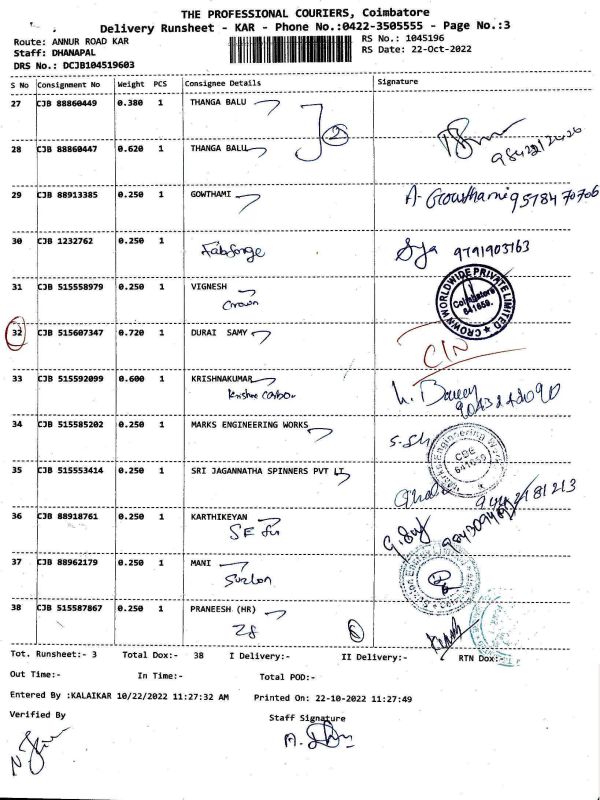 THE PROFESSIONAL COURIERS, Coimbatore
Delivery Runsheet - KAR - Phone No.:0422-3505555 - Page No.:3
Route: ANNUR ROAD KAR RS No.: 1045196
Staff: DHANAPAL RS Date: 22-Oct-2022
DRS No.: DCJB104519603
S No Consignment No Weight PCS Consignee Details Signature
27 CJB 88860449 0.380 1 THANGA BALU
2
28 CJB 88860447 0.620 1 THANGA BALU
29 CJB 88913385 0.250 1 GOWTHAMI A- Gowthami 9578470706
30 CJB 1232762 0.250 1 Fabforge 9791903163
31 CJB 515558979 0.250 1 VIGNESH
Crown
CROWN WORLDWIDE PRIVATE LIMITED
Coimbatore 641659.
32 CJB 515607347 0.720 1 DURAI SAMY
33 CJB 515592099 0.600 1 KRISHNAKUMAR
Krishna Carbon
34 CJB 515585202 0.250 1 MARKS ENGINEERING WORKS
CBE 641659
35 CJB 515553414 0.250 1 SRI JAGANNATHA SPINNERS PVT LT
36 CJB 88918761 0.250 1 KARTHIKEYAN
37 CJB 88962179 0.250 1 MANI
Suzlon
38 CJB 515587867 0.250 1 PRANEESH (HR)
Tot. Runsheet:- 3 Total Dox:- 38 I Delivery:- II Delivery:- RTN Dox:-
Out Time:- In Time:- Total POD:-
Entered By :KALAIKAR 10/22/2022 11:27:32 AM Printed On: 22-10-2022 11:27:49
Verified By Staff Signature